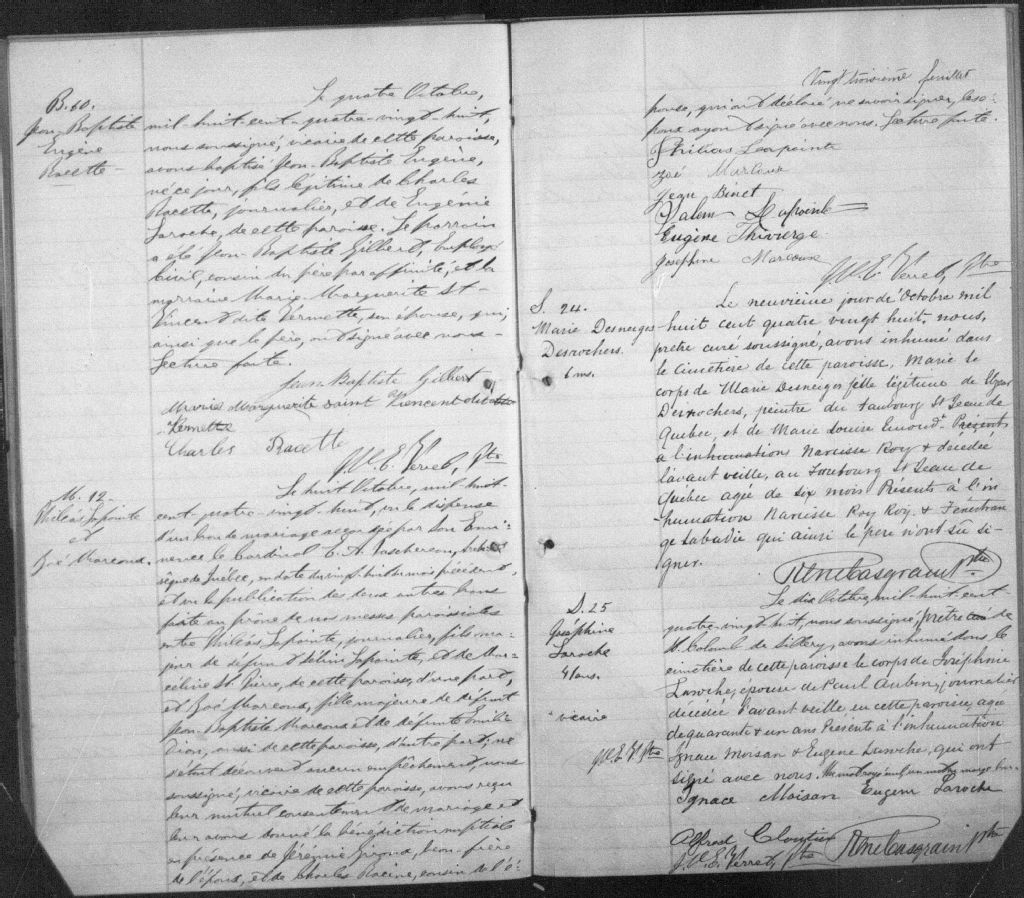 B. 60.
Jean-Baptiste
Eugène
Racette
Le quatre Octobre,
mil-huit-cent-quatre-vingt-huit,
nous soussigné, vicaire de cette paroisse,
avons baptisé Jean-Baptiste Eugène,
né ce jour, fils légitime de Charles
Racette, journalier, et de Eugénie
Laroche, de cette paroisse. Le parrain
a été Jean-Baptiste Gilbert, Employé
Civil, cousin du père par affinité, et la
marraine Marie-Marguerite St-
Vincent dite Vermette, son épouse, qui,
ainsi que le père, ont signé avec nous.
Lecture faite.
Jean Baptiste Gilbert
Marie Marguerite Saint Vincent dit
Vermette
Charles Racette
M. 12.
Philéas Lapointe
et
Zoé Marcoux.
Le huit Octobre, mil-huit-
cent-quatre-vingt-huit, vu la dispense
d'un ban de mariage accordée par Son Emi-
nence le Cardinal E. A. Taschereau, Arche-
vêque de Québec, en date du vingt-huit du mois précédent,
et vu la publication des deux autres bans
faite au prône de nos messes paroissiales
entre Philéas Lapointe, journalier, fils ma-
jeur de défunt Lapointe, et de Mar-
céline St. Pierre, de cette paroisse, d'une part,
et Zoé Marcoux, fille majeure de défunt
Jean-Baptiste Marcoux et de défunte Emilie
Dion, aussi de cette paroisse, d'autre part; ne
s'étant découvert aucun empêchement, nous
soussigné, vicaire de cette paroisse, avons reçu
leur mutuel consentement de mariage et
leur avons donné la bénédiction nuptiale
en présence de Jérémie Giroux, beau-frère
de l'époux, et de Charles Racine, cousin de l'é-
Vingt troisième feuillet
pouse, qui ont déclaré ne savoir signer, les é-
poux ayant signé avec nous. Lecture faite.
Philias Lapointe
Zoé Marcoux
Jean Binet
Lapointe
Eugène Thivierge
Joséphine Marcoux
S. 24.
Marie Desneiges
Desrochers.
6 ms.
Le neuvième jour de Octobre mil
huit cent quatre vingt huit, nous,
prêtre curé soussigné, avons inhumé dans
le cimetière de cette paroisse, Marie le
corps de Marie Desneiges fille légitime de
Desrochers, peintre du Faubourg St Jean de
Québec, et de Marie Louise Emond. Présents
à l'inhumation Narcisse Roy & décédée
l'avant veille, au Faubourg St Jean de
Québec agée de six mois Présents à l'in
humation Narcisse Roy Roy. &
Labadie qui ainsi le père n'ont su si-
gner.
René Casgrain Ptre
S. 25
Joséphine
Laroche
41 ans.
Le dix Octobre, mil-huit-cent
quatre-vingt-huit, nous soussigné, prêtre curé de
St. Colomb de Sillery, avons inhumé dans le
cimetière de cette paroisse le corps de Joséphine
Laroche, épouse de Paul Aubin, journalier
décédée l'avant veille en cette paroisse, agée
de quarante & un ans Présents à l'inhumation
Ignace Moisan & Eugène Laroche, qui ont
signé avec nous.
vicaire
Ignace Moisan Eugène Laroche
Alfred Cloutier
René Casgrain Ptre